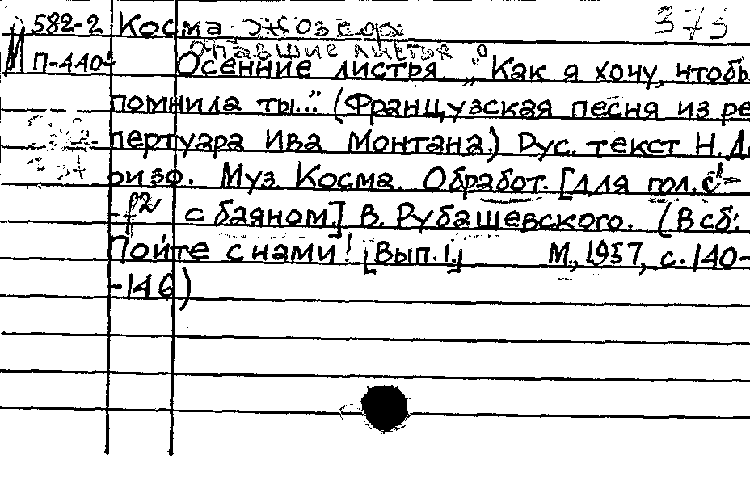 582-2 Косма Жозеф 375
опавшие листья
П-440 Осенние листья „О Как я хочу, чтобы
помнила ты..." (Французская песня из ре
пертуара Ива Монтана) Рус. текст Н. До
ризо. Муз Косма. Обработ. [для гол. c¹-
-f2 с баяном.] В. Рубашевского. (В сб:
Пойте с нами! [Вып. 1] М, 1957, с. 140-
-146)